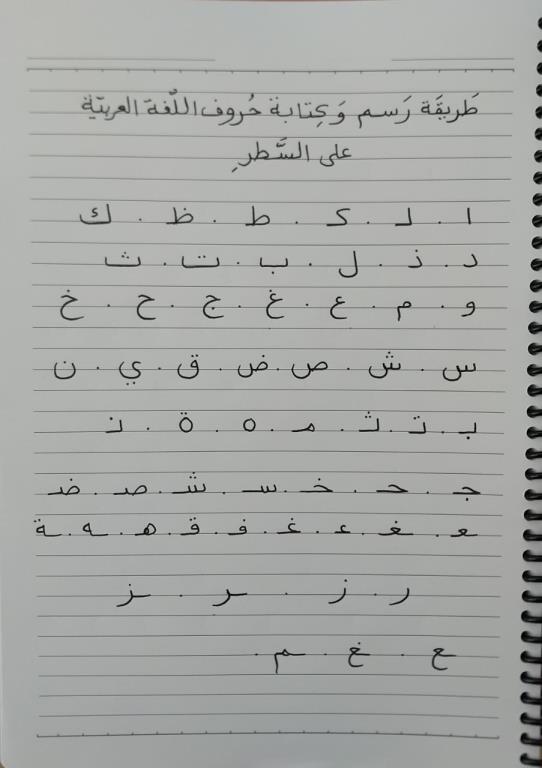 طَريقَة رَسم وَكِتابة حُروف اللّغة العربيّة
على السَّطرِ
ا . لـ . كـ . ط . ظ . ك
د . ذ . ل . ب . ت . ث
و . م . ع . غ . ج . ح . خ
س . ش . ص . ض . ق . ي . ن
بـ . تـ . ثـ . مـ . ه . ة . نـ
جـ . حـ . خـ . سـ . شـ . صـ . ضـ
ـعـ . ـغـ . عـ . غـ . فـ . قـ . هـ . ـه . ـة
ر . ز . ـر . ـز
ـع . ـغ . ـم .